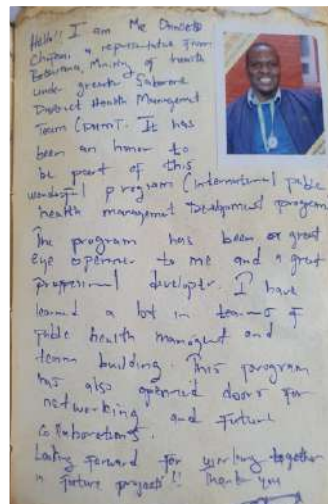 Hello!! I am Mr
a representative from
Botswana, Ministry of health
under greater Gaborone
District Health Management
Team (DHMT). It has
been an honor to
be part of this
wonderful program (International public
health management Development program
The program has been a great
eye openner to me and a great
proffesional developer. I have
learned a lot in teams of
public health managent and
team building. This program
has also openned doors for
networking and future
collaborations.
Looking forward for working together
in future projects!! Thank you